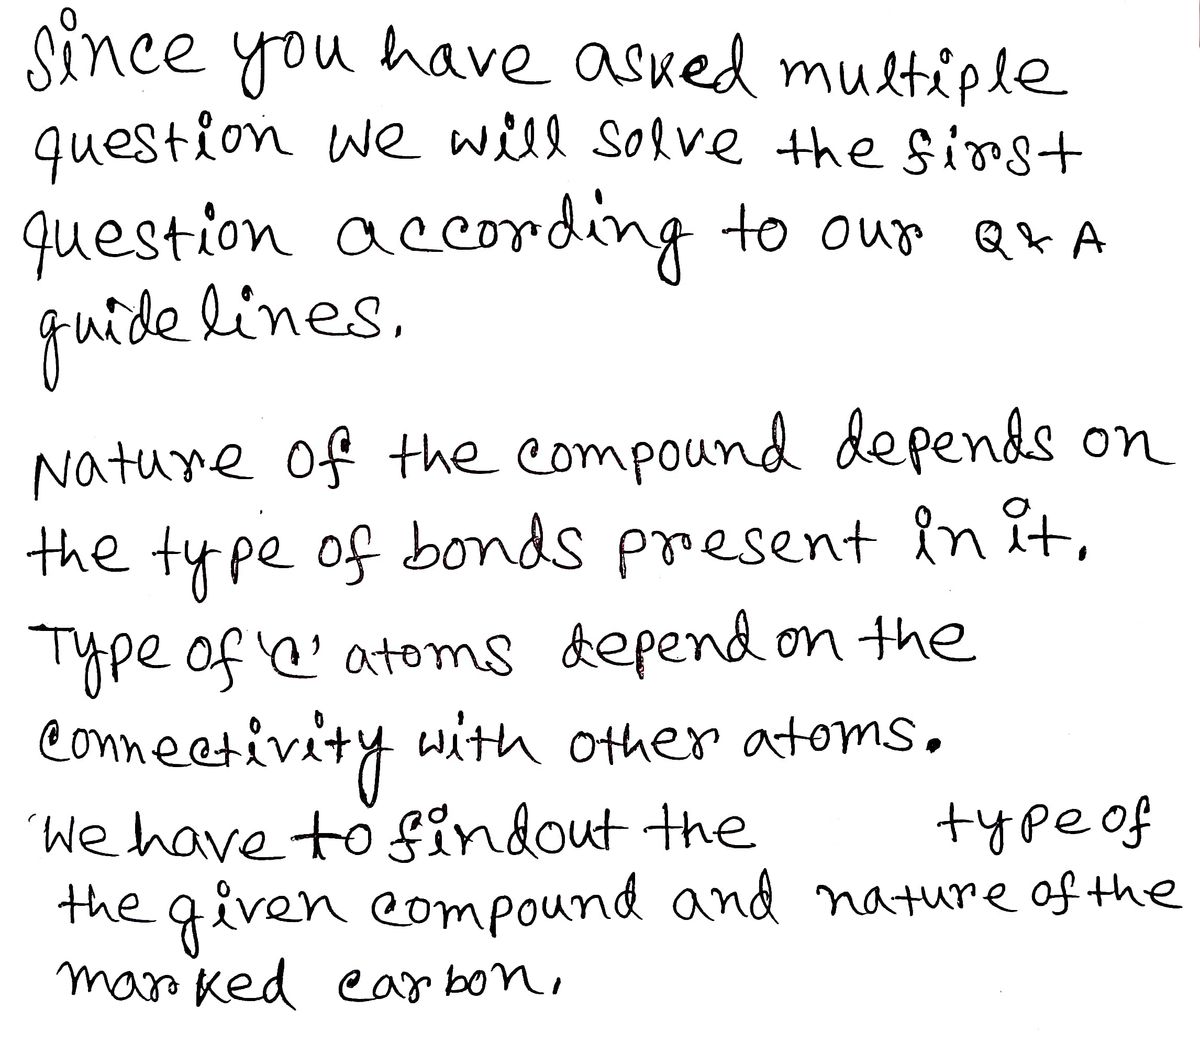 Since you have asked multiple
question we will solve the first
question according to our Q & A
guidelines.
Nature of the compound depends on
the type of bonds present in it.
Type of 'C' atoms depend on the
connectivity with other atoms.
We have to findout the type of
the given compound and nature of the
marked carbon.